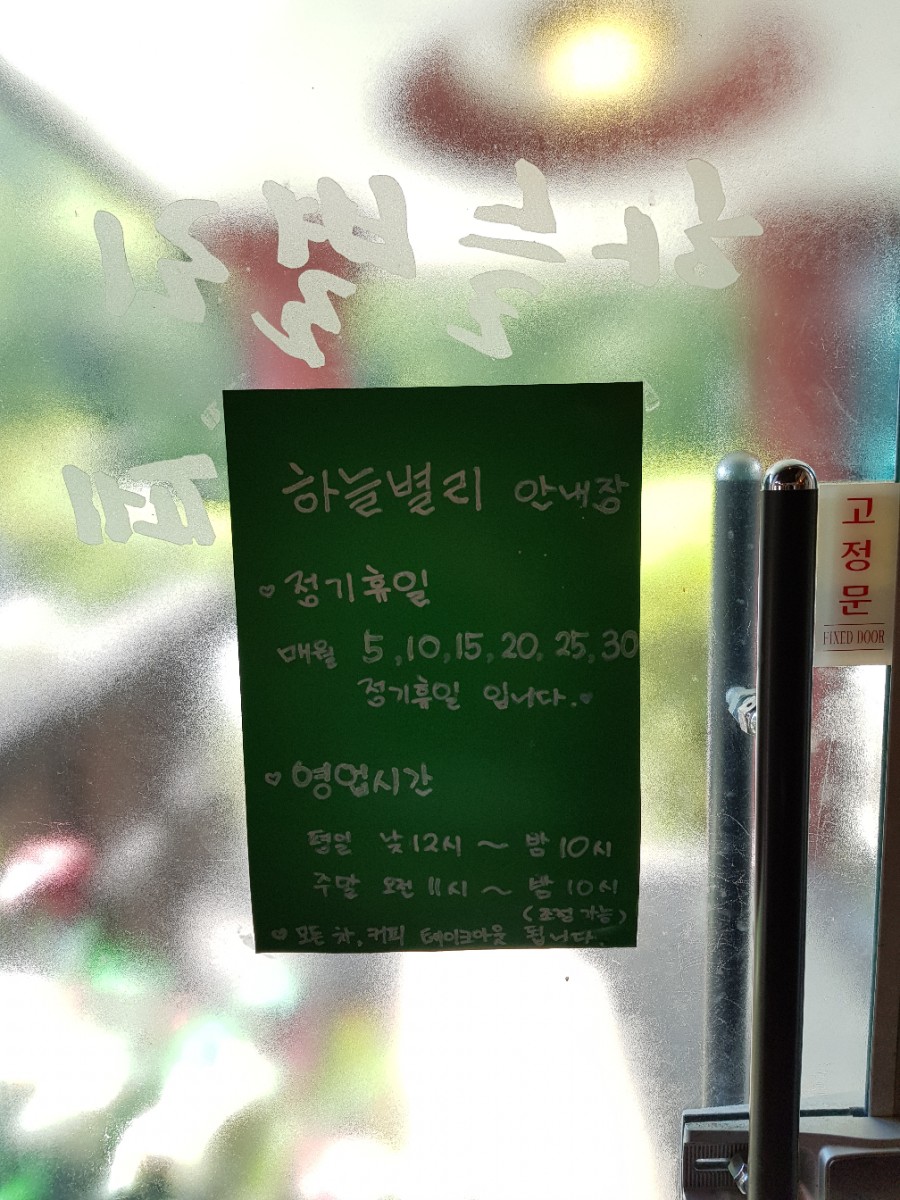 하늘별리
하늘별리 안내장
♡ 정기휴일
매월 5, 10, 15, 20, 25, 30
정기휴일 입니다.♥
♡ 영업시간
평일 낮 12시 ~ 밤 10시
주말 오전 11시 ~ 밤 10시
(조정 가능)
♡ 모든 차, 커피 테이크아웃 됩니다.
고정문
FIXED DOOR